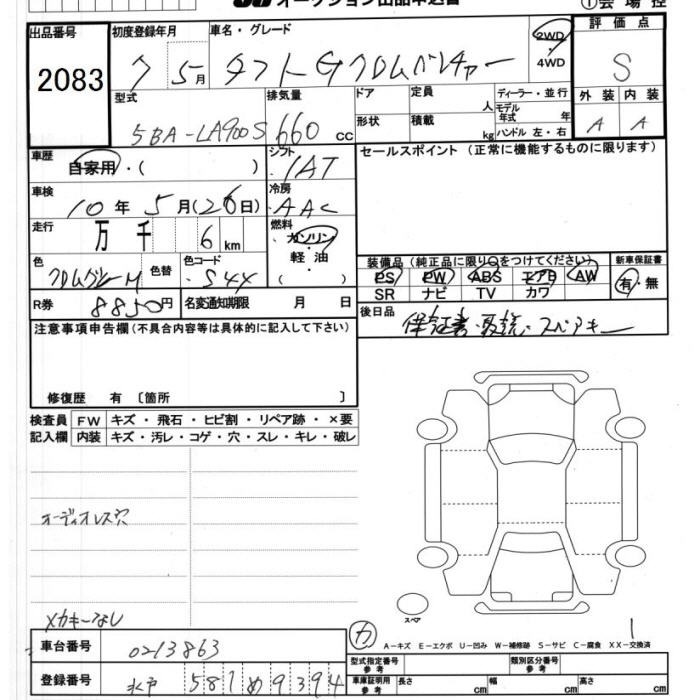 オークション出品申込書
①会場控
出品番号 2083
初度登録年月 7 5月
車名・グレード タフトGクロムベンチャー
2WD
4WD
評価点 S
型式 5BA-LA900S
排気量 660 cc
ドア
形状
定員 人
積載 kg
ディーラー・並行
モデル年式 年
ハンドル 左・右
外装 内装
A A
車歴 自家用・( )
シフト IAT
セールスポイント (正常に機能するものに限ります)
車検 10年5月(26日)
冷房 AAC
走行 万 千 6 km
燃料 ガソリン
軽油
( )
色 クロムグレーM 色替
色コード S44
装備品 (純正品に限り○をつけてください)
PS PW ABS エアB AW
SR ナビ TV カワ
新車保証書
有・無
R券 8850円 名変通知期限 月 日
後日品 保証書・取説・スペアキー
注意事項申告欄(不具合内容等は具体的に記入して下さい)
修復歴 有 〔箇所 〕
検査員 FW キズ・飛石・ヒビ割・リペア跡・×要
記入欄 内装 キズ・汚レ・コゲ・穴・スレ・キレ・破レ
オーディオレス穴
メカキーなし
スペア
カ
1
A-キズ E-エクボ U-凹み W-補修跡 S-サビ C-腐食 XX-交換済
車台番号 0213863
型式指定番号 参考
類別区分番号 参考
登録番号 水戸 581 め 9394
車庫証明用 参考 長さ cm 幅 cm 高さ cm